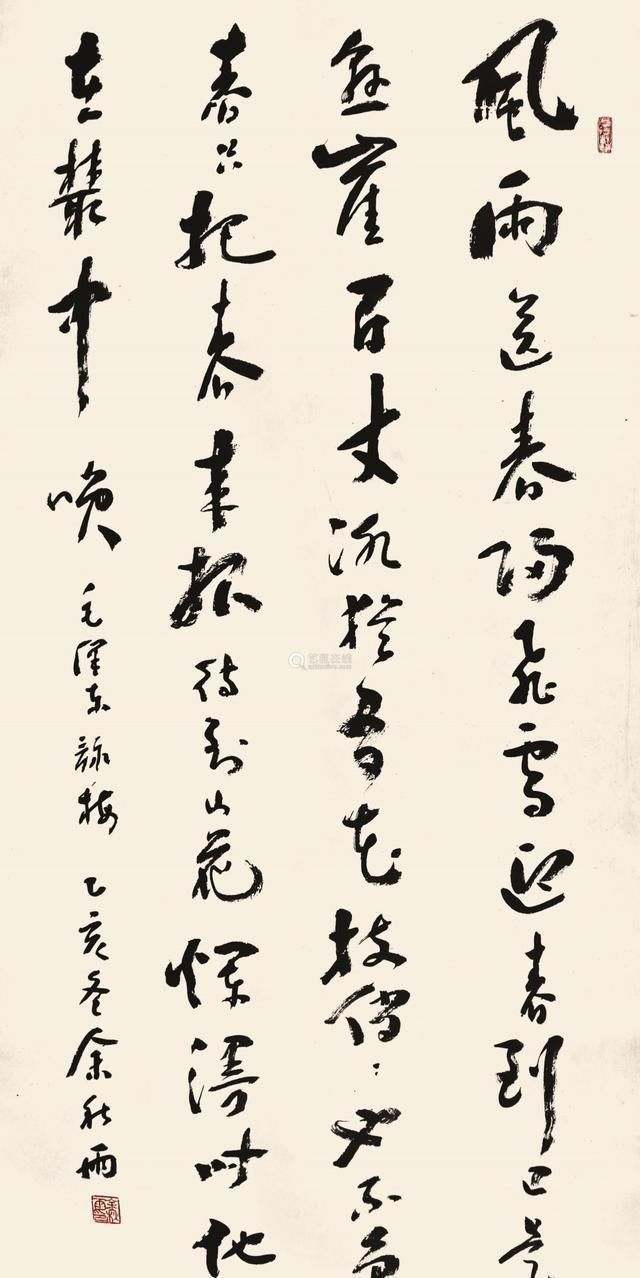 風雨送春歸飛雪迎春到已是
悬崖百丈冰猶有花枝俏〻也不争
春只把春来報待到山花爛漫時他
在叢中咲 毛澤東詠梅 乙亥冬余秋雨
艺狐在线